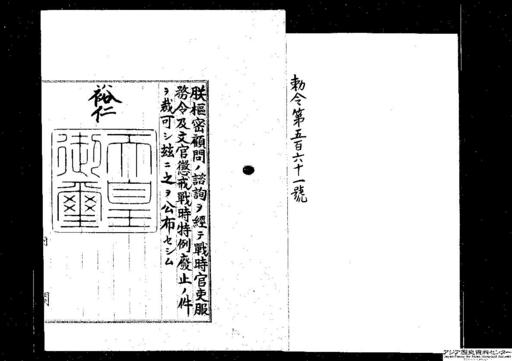 勅令第五百六十一號
朕樞密顧問ノ諮詢ヲ經テ戰時官吏服
務令及文官懲戒戰時特例廢止ノ件
ヲ裁可シ玆ニ之ヲ公布セシム
裕仁
天皇
御璽
アジア歴史資料センター